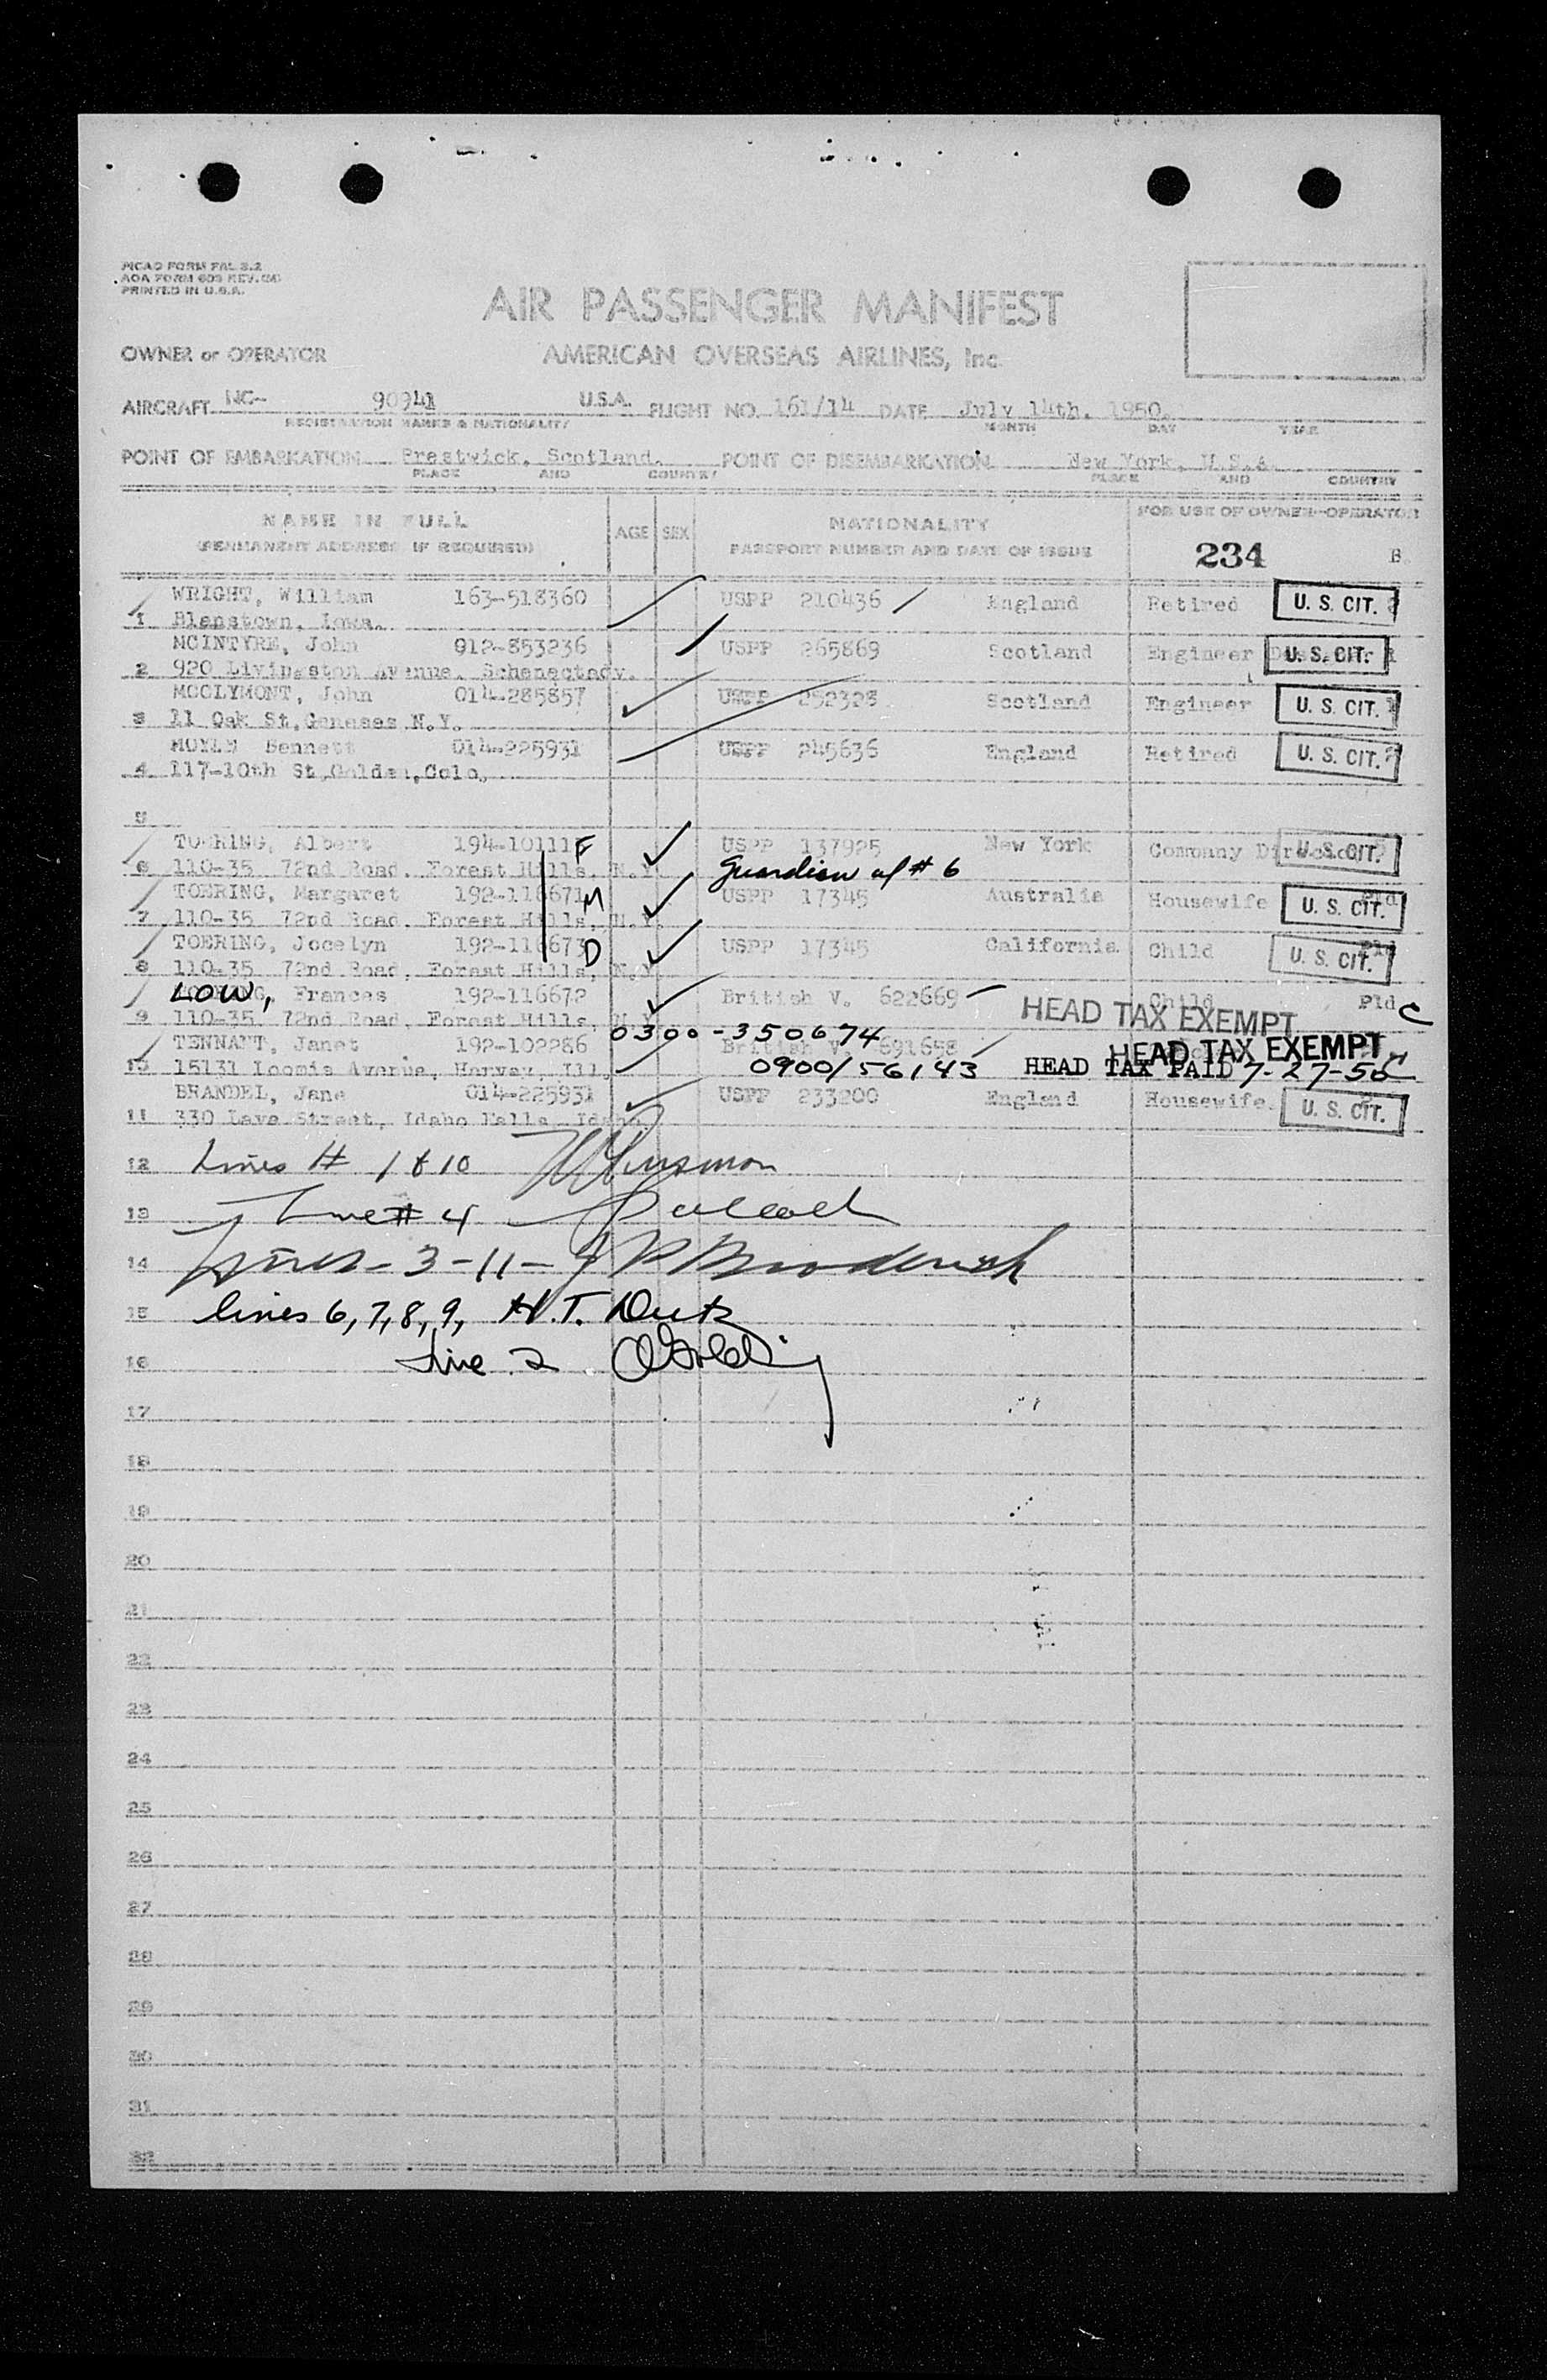 PICAO FORM FAL 3.2
AOA FORM 603 REV.
PRINTED IN U.S.A.
AIR PASSENGER MANIFEST
OWNER or OPERATOR AMERICAN OVERSEAS AIRLINES, Inc.
AIRCRAFT NC- 90941 U.S.A. FLIGHT NO. 161/14 DATE July 14th. 1950.
REGISTRATION MARKS & NATIONALITY MONTH DAY YEAR
POINT OF EMBARKATION Prestwick, Scotland. POINT OF DISEMBARKATION New York, U.S.A.
PLACE AND COUNTRY PLACE AND COUNTRY
NAME IN FULL AGE SEX NATIONALITY FOR USE OF OWNER-OPERATOR
(PERMANENT ADDRESS IF REQUIRED) PASSPORT NUMBER AND DATE OF ISSUE 234 B.
WRIGHT, William 163-518360 USPP 210436 England Retired U. S. CIT.
1 Blanstown, Iowa.
MCINTYRE, John 912-853236 USPP 265869 Scotland Engineer U. S. CIT.
2 920 Livingston Avenue. Schenectady.
MCCLYMONT, John 014-285857 USPP 252328 Scotland Engineer U. S. CIT.
3 11 Oak St, N.Y.
MOYLE Bennett 014-225931 USPP 245636 England Retired U. S. CIT.
4 117-10th St, Golden, Colo.
5
TOERING, Albert 194-101115 F USPP 137925 New York Company Director U. S. CIT.
6 110-35 72nd Road, Forest Hills, N.Y. Guardian of # 6
TOERING, Margaret 192-116671 M USPP 17345 Australia Housewife U. S. CIT.
7 110-35 72nd Road, Forest Hills, N.Y.
TOERING, Jocelyn 192-116673 D USPP 17345 California Child U. S. CIT.
8 110-35 72nd Road, Forest Hills, N.Y.
LOW, Frances 192-116672 British V. 622669 HEAD TAX EXEMPT Child Pld C
9 110-35 72nd Road, Forest Hills, N.Y. 0300-350674
TENNANT, Janet 192-102286 British V. 691658 HEAD TAX EXEMPT
10 15131 Loomis Avenue, Harvey, Ill. 0900/56143 HEAD TAX PAID 7-27-50
BRANDEL, Jane 014-225931 USPP 233200 England Housewife. U. S. CIT.
11 330 Lava Street, Idaho Falls, Idaho.
12 Lines # 1 & 10
13 Line # 4
14 Lines - 3 - 11 - J P Broderick
15 lines 6, 7, 8, 9, H.T.
16 Line 2
17
18
19
20
21
22
23
24
25
26
27
28
29
30
31
32